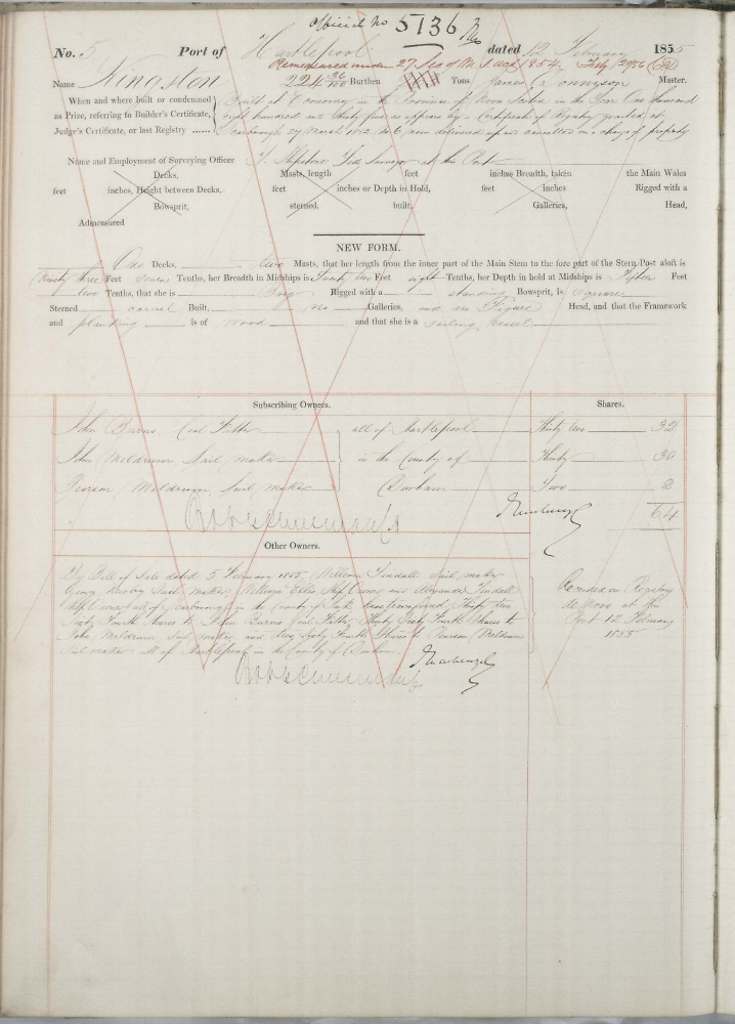 Official No 5136
No. 5 Port of Hartlepool dated 12 February 1855
Remeasured under 27 Sec of M. S. Act 1854
Name Kingston 224 36/100 Burthen Tons James Master.
When and where built or condemned Built at Economy in the Province of Nova Scotia in the Year One thousand
as Prize, referring to Builder's Certificate, eight hundred and thirty five as appears by a Certificate of Registry granted at
Judge's Certificate, or last Registry Scarborough 29 March 1852 No 6 now delivered up and cancelled on a change of property
Name and Employment of Surveying Officer Surveyor at the Port
Decks, Masts, length feet inches Breadth, taken the Main Wales
feet inches, Height between Decks, feet inches or Depth in Hold, feet inches Rigged with a
Bowsprit, sterned, built, Galleries, Head,
Admeasured
NEW FORM.
One Decks, two Masts, that her length from the inner part of the Main Stem to the fore part of the Stern Post aloft is
Ninety three Feet seven Tenths, her Breadth in Midships is Twenty two Feet eight Tenths, her Depth in hold at Midships is fifteen Feet
two Tenths, that she is Brig Rigged with a standing Bowsprit, is square
Sterned carvel Built, no Galleries, and no Figure Head, and that the Framework
and planking is of wood and that she is a sailing vessel
Subscribing Owners. Shares.
John Burns Coal Fitter all of Hartlepool Thirty two 32
John Meldrum Sail maker in the County of Thirty 30
Pearson Meldrum Sail maker Durham Two 2
64
Other Owners.
By Bill of Sale dated 5 February 1855 William Tindall Sail maker
George Sail maker William Ship Owner and Alexander Tindall
Ship Owner all of Scarborough in the County of York have transferred Thirty two
Sixty Fourth Shares to John Burns Coal Fitter Thirty Sixty Fourth Shares to
John Meldrum Sail maker and Two Sixty Fourth Shares to Pearson Meldrum
Sail maker all of Hartlepool in the County of Durham
Recorded on Registry
de Novo at this
Port 12 February
1855